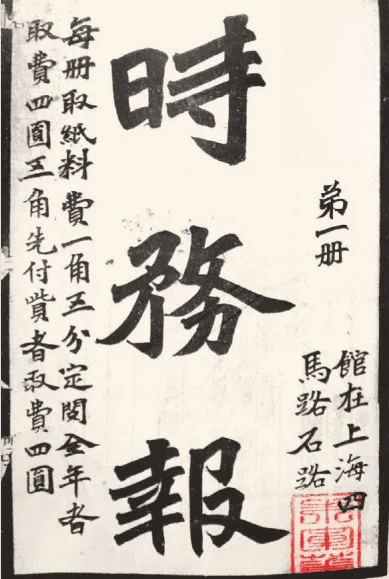 弟一册
館在上海四
馬路石路
時務報
每册取紙料費一角五分定閱全年者
取費四圓五角先付貲者取費四圓